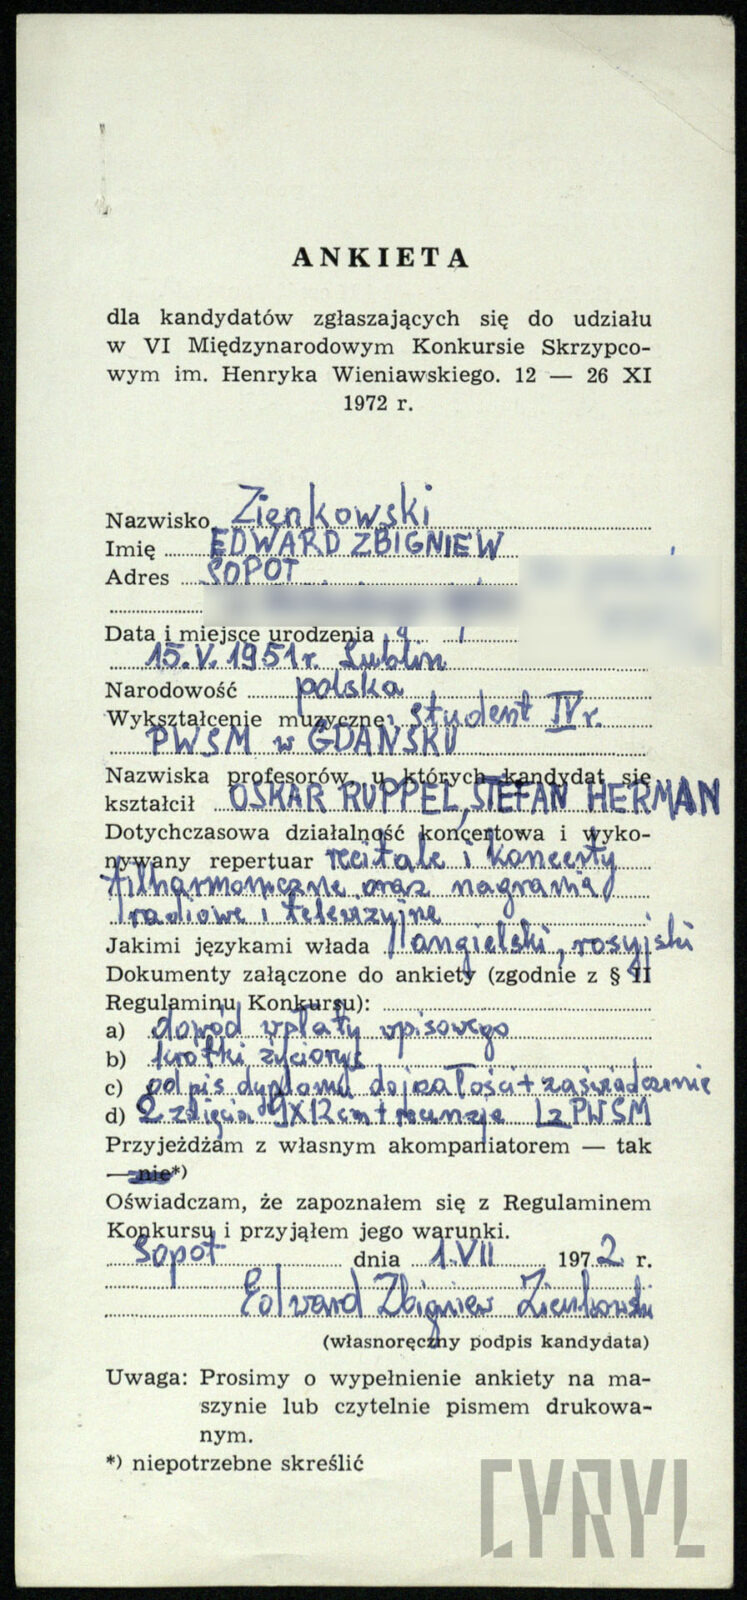 ANKIETA
dla kandydatów zgłaszających się do udziału
w VI Międzynarodowym Konkursie Skrzypco-
wym im. Henryka Wieniawskiego. 12 — 26 XI
1972 r.
Nazwisko Zienkowski
Imię EDWARD ZBIGNIEW
Adres SOPOT
Data i miejsce urodzenia
15.V.1951r. Lublin
Narodowość polska
Wykształcenie muzyczne student IV r.
PWSM w GDAŃSKU
Nazwiska profesorów, u których kandydat się
kształcił OSKAR RUPPEL, STEFAN HERMAN
Dotychczasowa działalność koncertowa i wyko-
nywany repertuar recitale i koncerty
filharmoniczne oraz nagrania
radiowe i telewizyjne
Jakimi językami włada angielski, rosyjski
Dokumenty załączone do ankiety (zgodnie z § II
Regulaminu Konkursu):
a) dowód wpłaty wpisowego
b) krótki życiorys
c) odpis dyplomu dojrzałości + zaświadczenie
d) 2 zdjęcia 9x12cm + recenzje z PWSM
Przyjeżdżam z własnym akompaniatorem — tak
— nie*)
Oświadczam, że zapoznałem się z Regulaminem
Konkursu i przyjąłem jego warunki.
Sopot dnia 1.VII 1972 r.
Edward Zbigniew Zienkowski
(własnoręczny podpis kandydata)
Uwaga: Prosimy o wypełnienie ankiety na ma-
szynie lub czytelnie pismem drukowa-
nym.
*) niepotrzebne skreślić
CYRYL